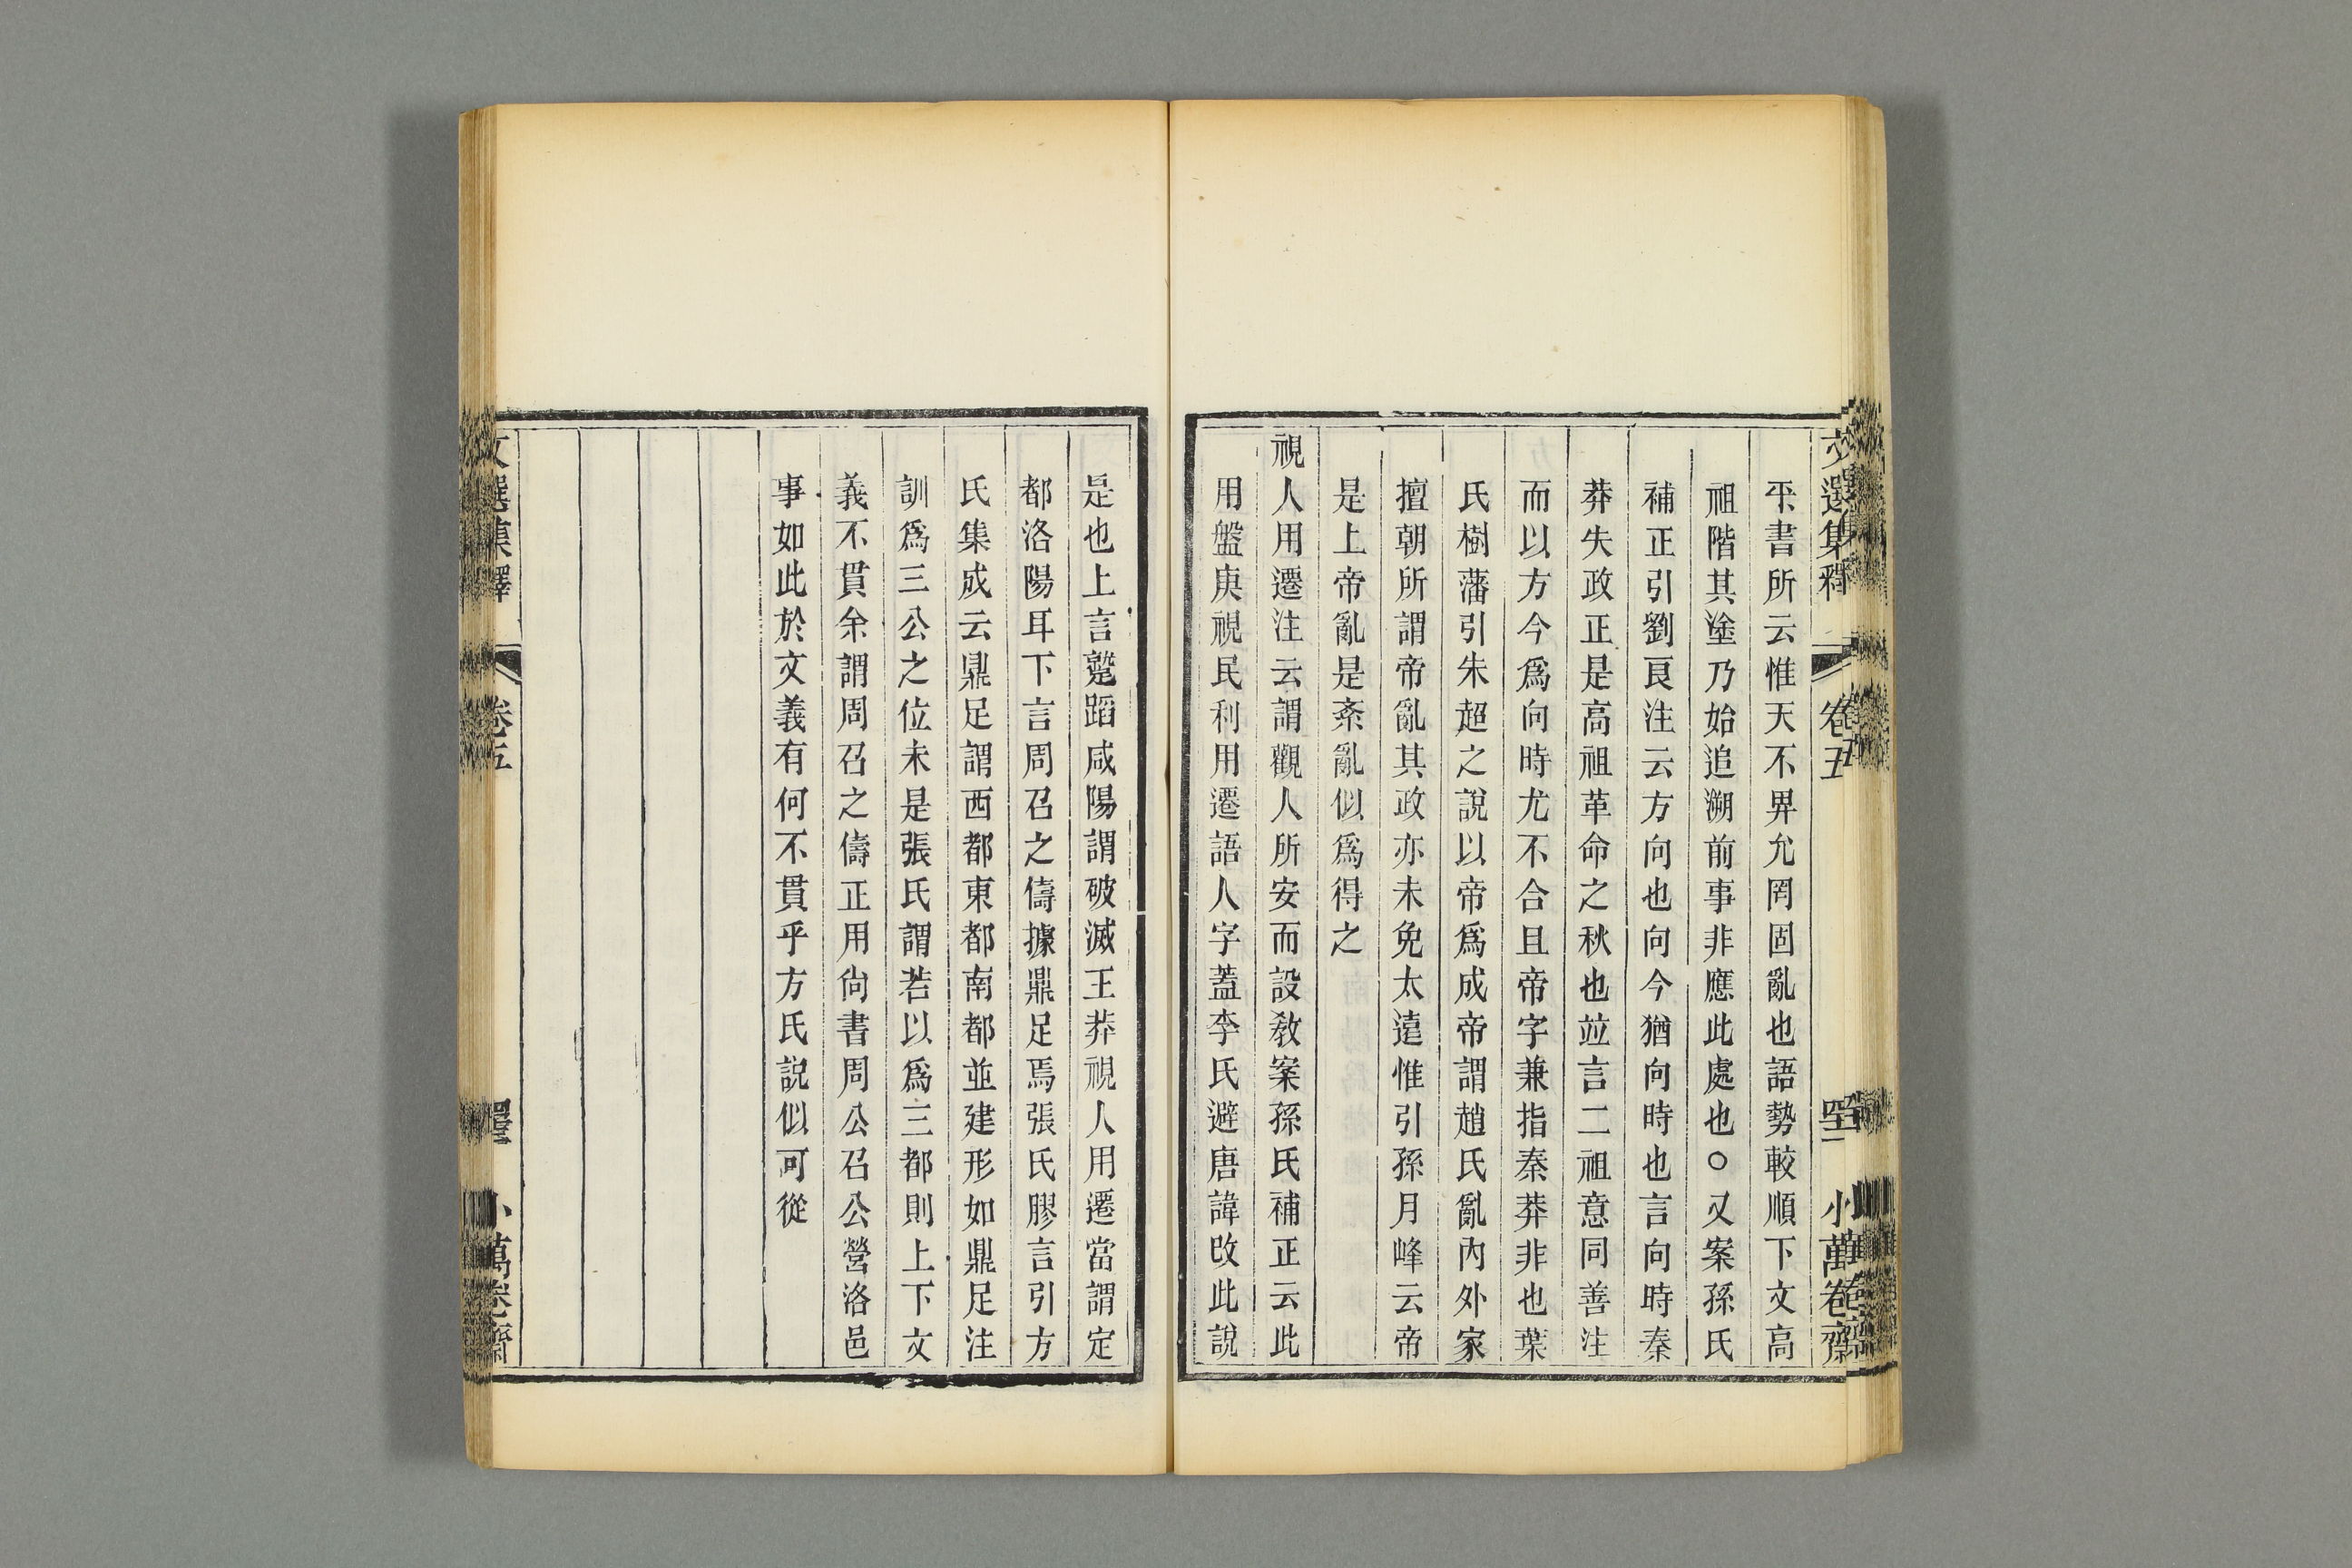 文選集釋 卷五 小萬卷齋
平書所云惟天不畀允罔固亂也語勢較順下文高
祖階其塗乃始追溯前事非應此處也○又案孫氏
補正引劉良注云方向也向今猶向時也言向時秦
莽失政正是高祖革命之秋也竝言二祖意同善注
而以方今爲向時尤不合且帝字兼指秦莽非也葉
氏樹藩引朱超之說以帝爲成帝謂趙氏亂內外家
擅朝所謂帝亂其政亦未免太遠惟引孫月峰云帝
是上帝亂是紊亂似爲得之
視人用遷注云謂觀人所安而設敎案孫氏補正云此
用盤庚視民利用遷語人字蓋李氏避唐諱改此說
是也上言蹵蹈咸陽謂破滅王莽視人用遷當謂定
都洛陽耳下言周召之儔據鼎足焉張氏膠言引方
氏集成云鼎足謂西都東都南都並建形如鼎足注
訓爲三公之位未是張氏謂若以爲三都則上下文
義不貫余謂周召之儔正用尙書周公召公營洛邑
事如此於文義有何不貫乎方氏說似可從
卷五